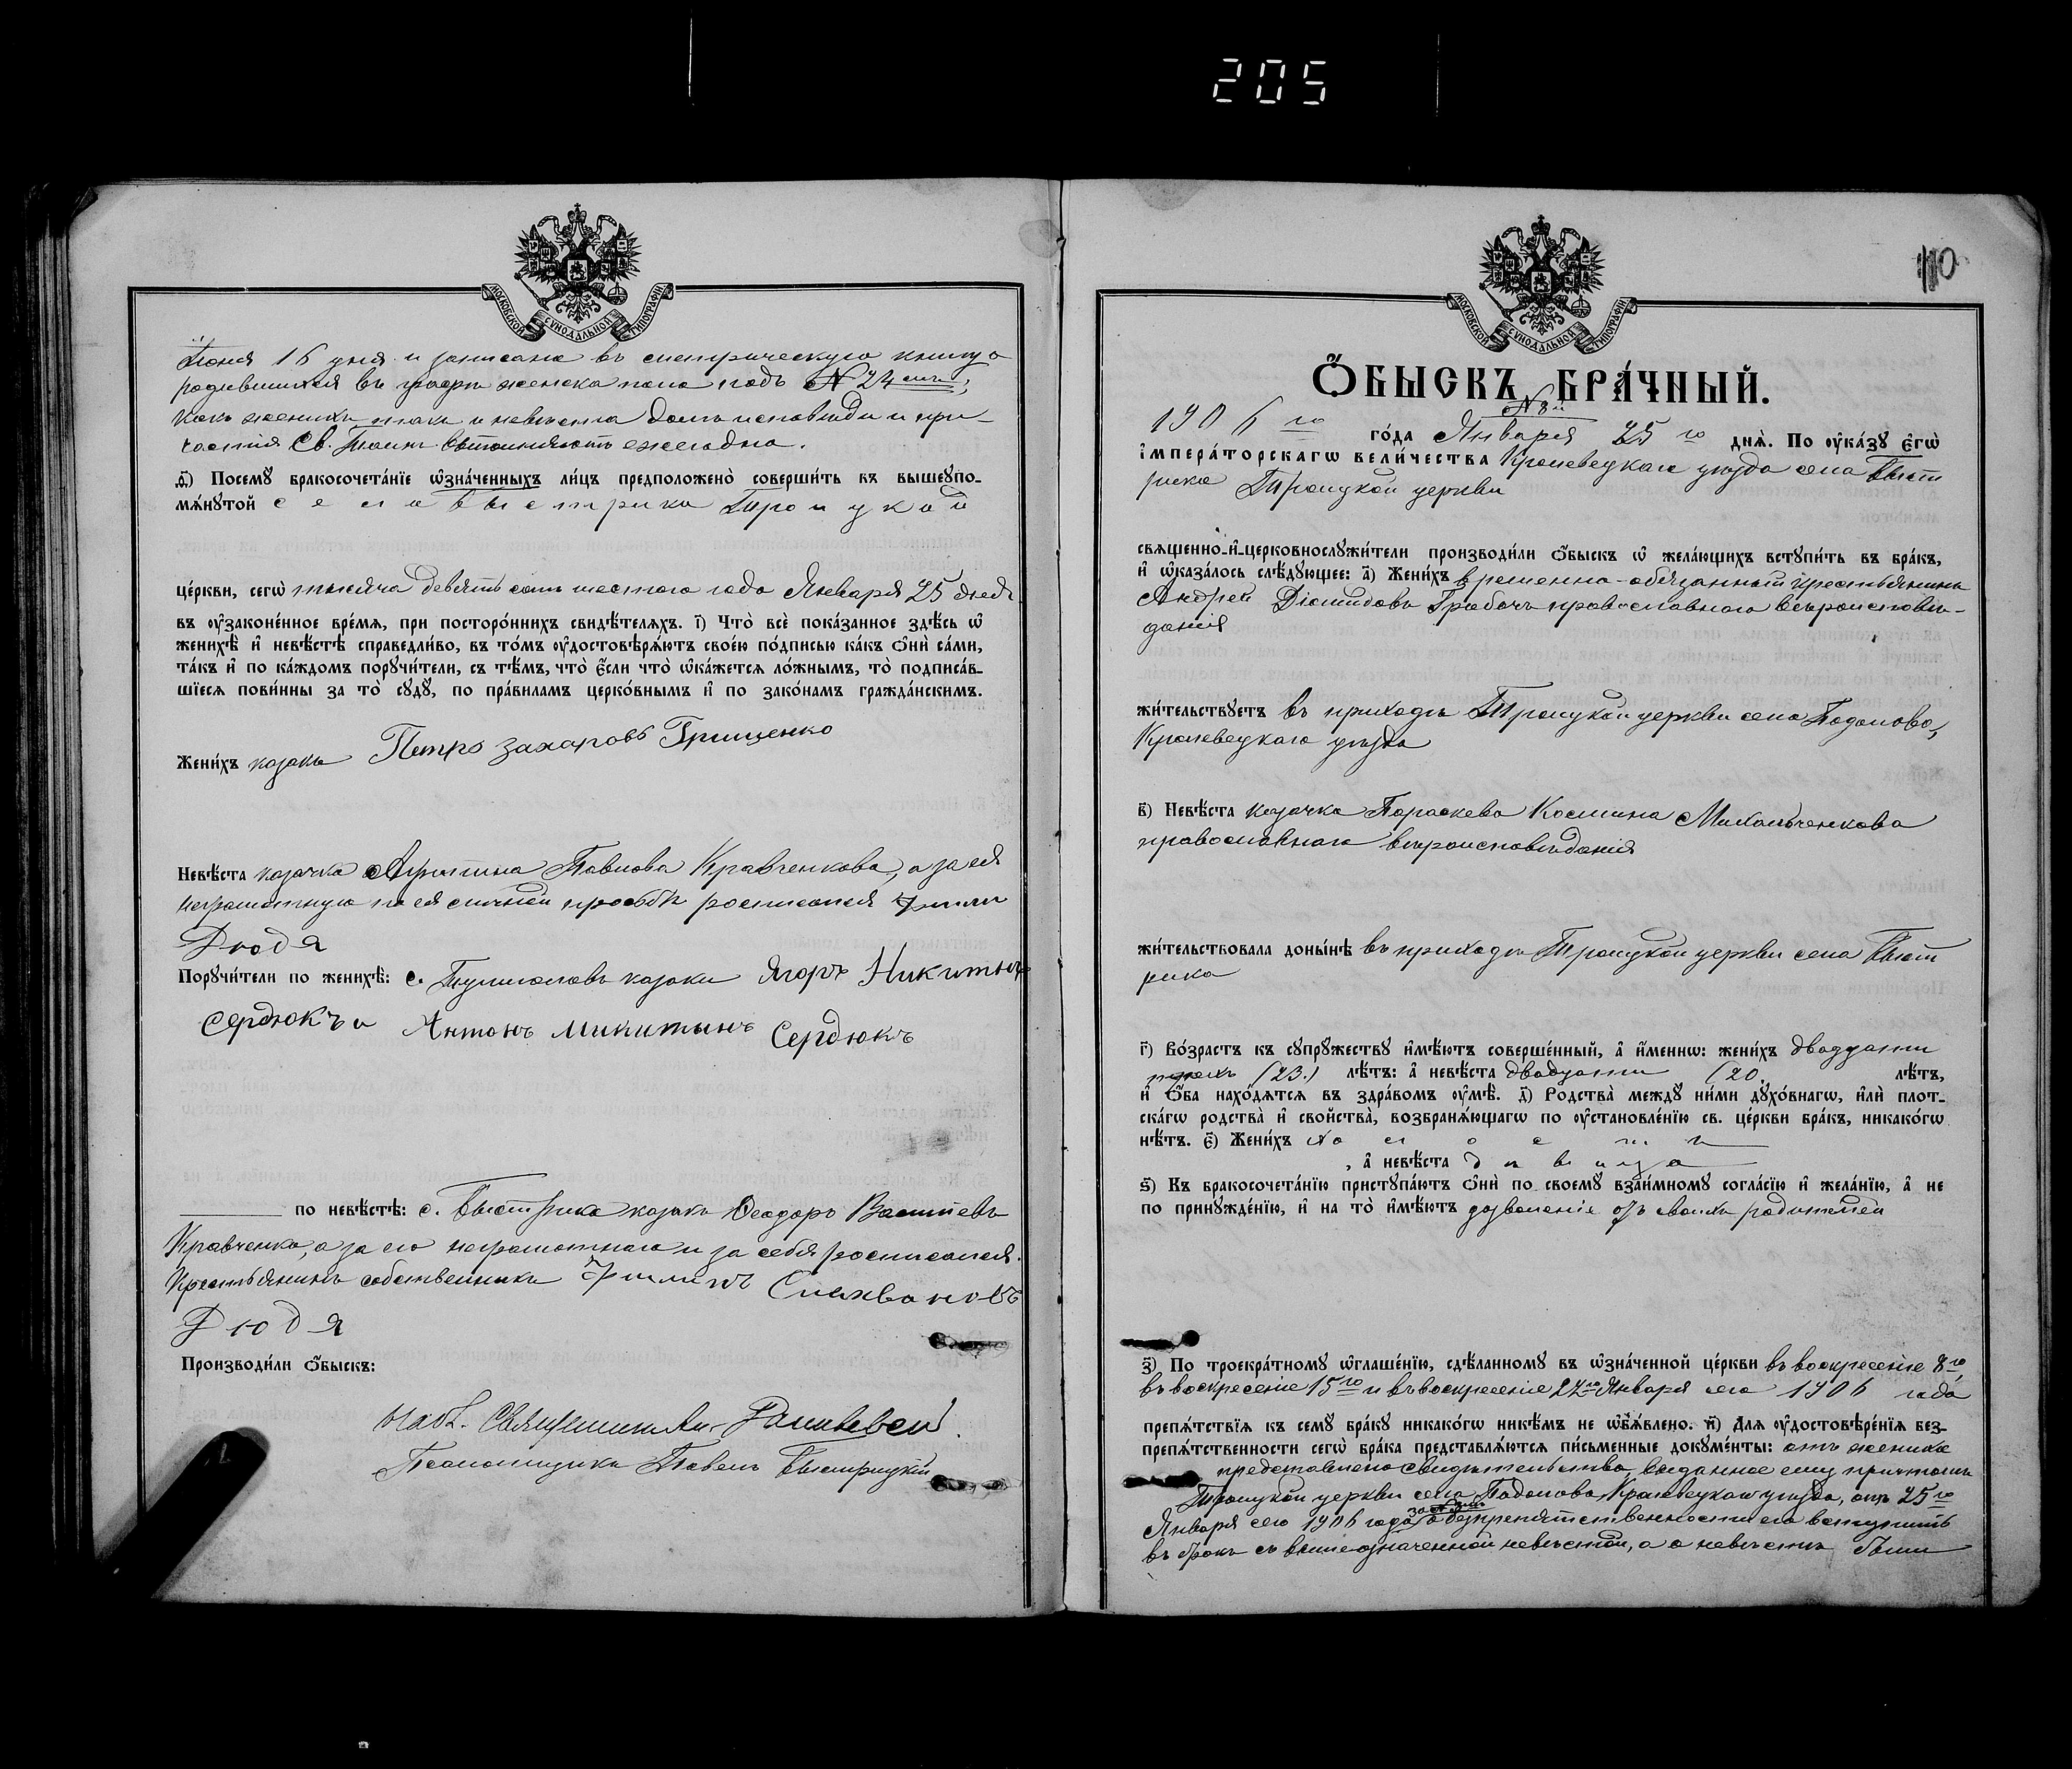 205
МОСКОВСКОЙ СѴНОДАЛЬНОЙ ТИПОГРАФІИ
Іюня 16 дня и записана въ метрическую книгу о
родившихся въ графѣ женска пола подъ № 24мъ;
какъ женихъ такъ и невѣста долгъ исповѣди и при-
частія Св. Таинъ ежегодно.
ѳ҃) Посемꙋ бракосочетанїе ѡзначенныхъ лицъ предположено совершить въ вышеꙋпо-
мѧнꙋтой села Быстрика Троицкой
церкви, сегѡ тысяча девятьсотъ шестого года Января 25 дня
въ ᲂузаконенное время, при постороннихъ свидѣтеляхъ. і҃) Что все показанное здѣсь ѡ
женихѣ и невѣстѣ справедливо, въ томъ ᲂудостовѣряютъ своею подписью какъ ѻни сами,
такъ и по каждомъ порꙋчители, съ тѣмъ, что если что ѡкажется ложнымъ, то подписав-
шїеся повинны за то сꙋдꙋ, по правиламъ церковнымъ и по законамъ гражданскимъ.
Женихъ козакъ Петро Захаровъ Грищенко
Невѣста козачка Павлова Кравченкова, а за ея
неграмотную по ея личной просьбѣ росписался Филип
Дюдя
Порꙋчители по женихѣ: с. козаки Ягоръ Никитынъ
Сердюкъ и Антонъ Микитынъ Сердюкъ
по невѣстѣ: с. Быстрика козакъ Ѳеодоръ Васильевъ
Кравченко, а за его неграмотного и за себя росписался
Крестьянинъ собственникъ Филипъ
Дюдя
Производили ѻбыскъ:
Псаломщикъ Павелъ Быстрицкій
МОСКОВСКОЙ СѴНОДАЛЬНОЙ ТИПОГРАФІИ
110
ѺБЫСКЪ БРАЧНЫЙ.
№ 8й
1906го года Января 25го дня. По ᲂуказꙋ Егѡ
Императорскагѡ Величества Кролевецкаго уѣзда села Быст
рика Троицкой церкви
священно-и-церковнослꙋжители производили ѻбыскъ ѡ желающихъ встꙋпить въ бракъ,
и ѡказалось слѣдꙋющее: а҃) Женихъ временно-обязанный крестьянинъ
Андрей Діомидовъ Грабачъ православнаго вѣроисповѣ-
данія
жительствꙋетъ въ приходѣ Троицкой церкви села Подолова,
Кролевецкаго уѣзда
в҃) Невѣста козачка Параскева Космина Михальченкова
православнаго вѣроисповѣданія
жительствовала донынѣ въ приходѣ Троицкой церкви села Быст
рика
г҃) Возрастъ къ сꙋпрꙋжествꙋ имѣютъ совершенный, а именнѡ: женихъ двадцати
трехъ (23.) лѣтъ: а невѣста двадцати (20. лѣтъ,
и ѻба находятся въ здравомъ ᲂумѣ. д҃) Родства междꙋ ними дꙋховнагѡ, или плот-
скагѡ родства и свойства, возбраняющагѡ по ᲂустановленїю св. церкви бракъ, никакогѡ
нѣтъ. є҃) Женихъ холостъ
, а невѣста дѣвица
ѕ҃) Къ бракосочетанїю пристꙋпаютъ ѻни по своемꙋ взаимномꙋ согласїю и желанїю, а не
по принꙋжденїю, и на то имѣютъ дозволеніе отъ своихъ родителей
з҃) По троекратномꙋ ѡглашенїю, сдѣланномꙋ въ ѡзначенной церкви въ воскресеніе 8го,
въ воскресеніе 15го и въ воскресеніе 22го Января сего 1906 года
препятствїя къ семꙋ бракꙋ никакогѡ никѣмъ не ѡб̾явлено. и҃) Для ᲂудостовѣренїя без-
препятственности сегѡ брака представляются письменные докꙋменты: отъ жениха
представлено свидѣтельство, выданное ему причтомъ
Троицкой церкви села Подолова, Кролевецкаго уѣзда, отъ 25го
Января сего 1906 года о безпрепятственности его вступить
въ бракъ съ вышеозначенной невѣстой, а о невѣстѣ были